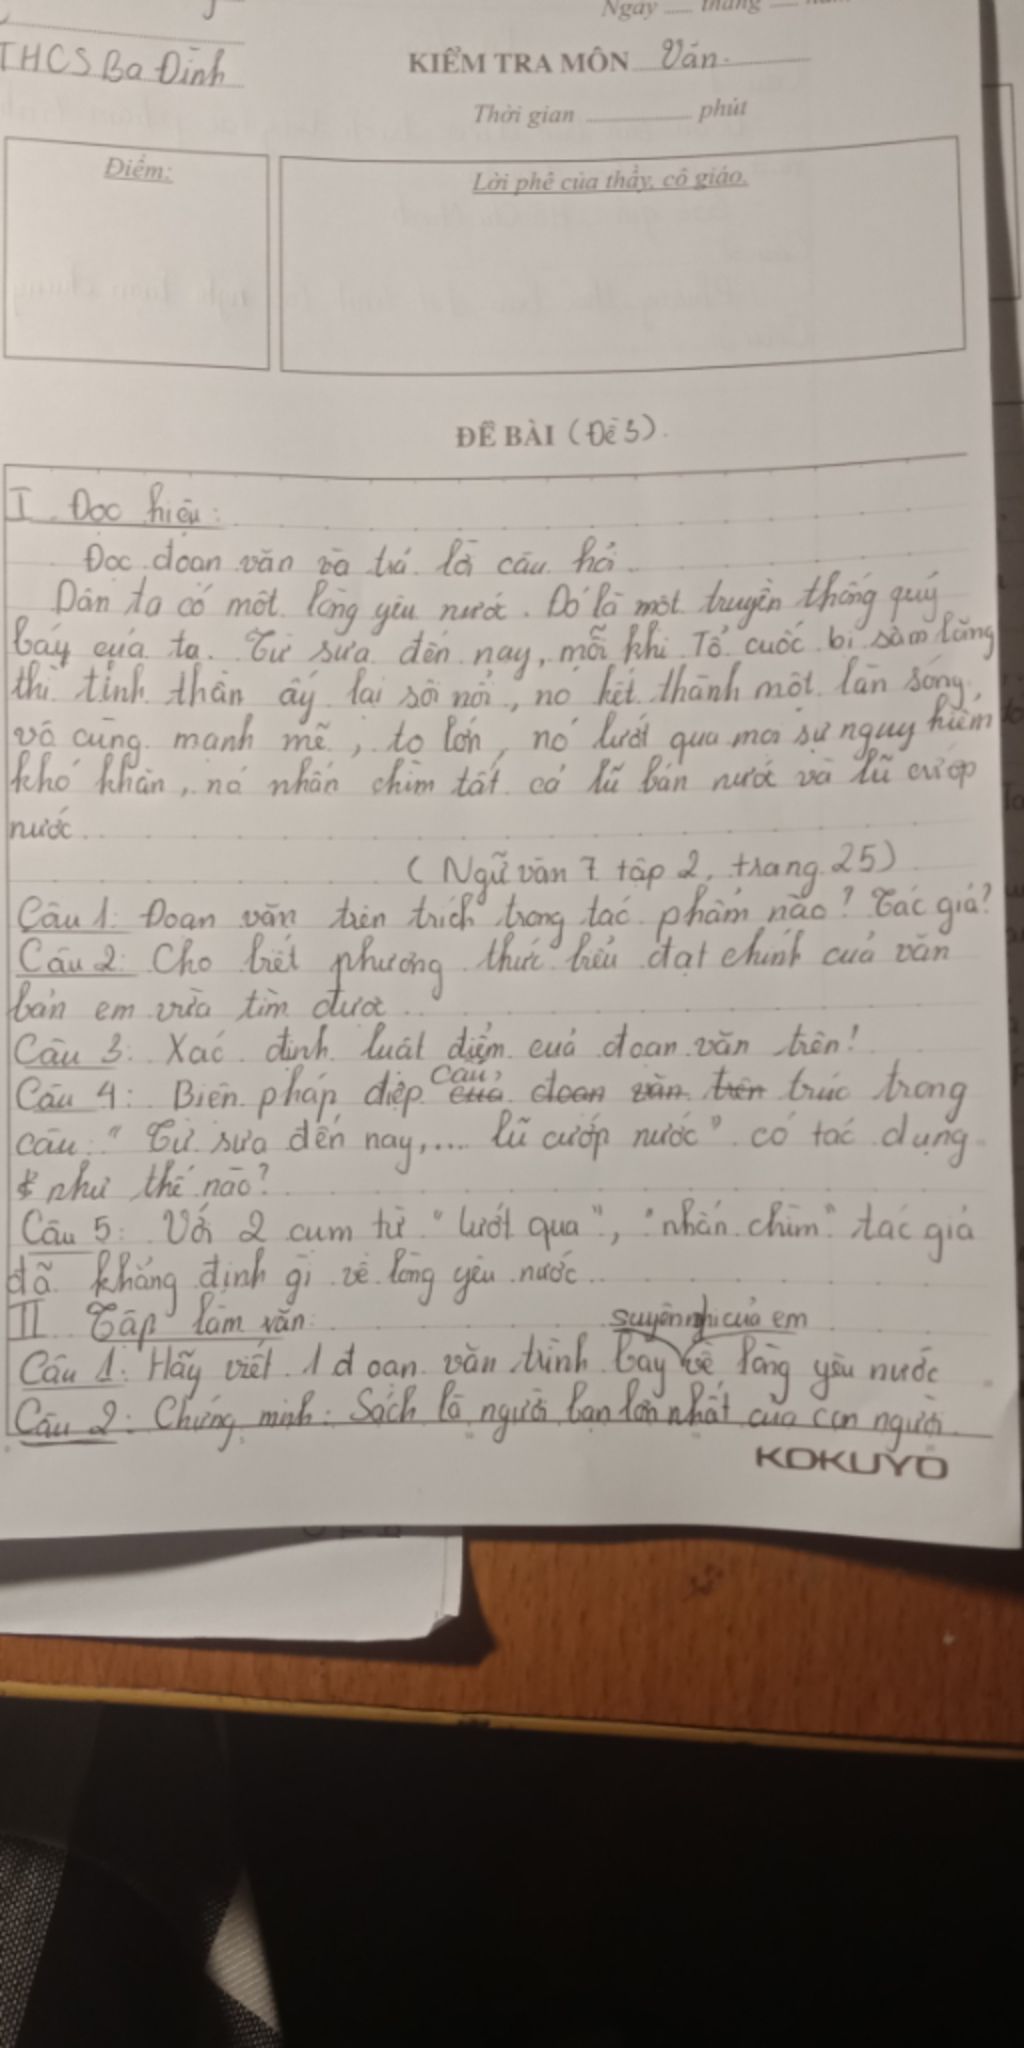 Ngày tháng
THCS Ba Đình
KIỂM TRA MÔN Văn
Thời gian phút
Điểm:
Lời phê của thầy, cô giáo.
ĐỀ BÀI (Đề 3)
I Đọc hiểu:
Đọc đoạn văn và trả lời câu hỏi
Dân ta có một lòng yêu nước. Đó là một truyền thống quý
báy của ta. Từ sưa đến nay, mỗi khi Tổ cuốc bị sâm lăng
thì tinh thần ấy lại sôi nổi, nó kết thành một làn sóng
vô cùng mạnh mẽ, to lớn, nó lướt qua mọi sự nguy hiểm
khó khăn, nó nhấn chìm tất cả lũ bán nước và lũ cướp
nước
(Ngữ văn 7 tập 2, trang 25)
Câu 1: Đoạn văn trên trích trong tác phẩm nào? Tác giả?
Câu 2: Cho biết phương thức biểu đạt chính của văn
bản em vừa tìm được
Câu 3: Xác định luật điểm của đoạn văn trên!
Câu 4: Biện pháp điệp cấu của đoạn văn trên trúc trong
câu: "Từ sưa đến nay,.... lũ cướp nước" có tác dụng
như thế nào?
Câu 5: Với 2 cụm từ "lướt qua", "nhấn chìm" tác giả
đã khẳng định gì về lòng yêu nước
II Tập làm văn:
suy nghĩ của em
Câu 1: Hãy viết 1 đoạn văn trình bày về lòng yêu nước
Câu 2: Chứng minh: Sách là người bạn lớn nhất của con người
KOKUYO